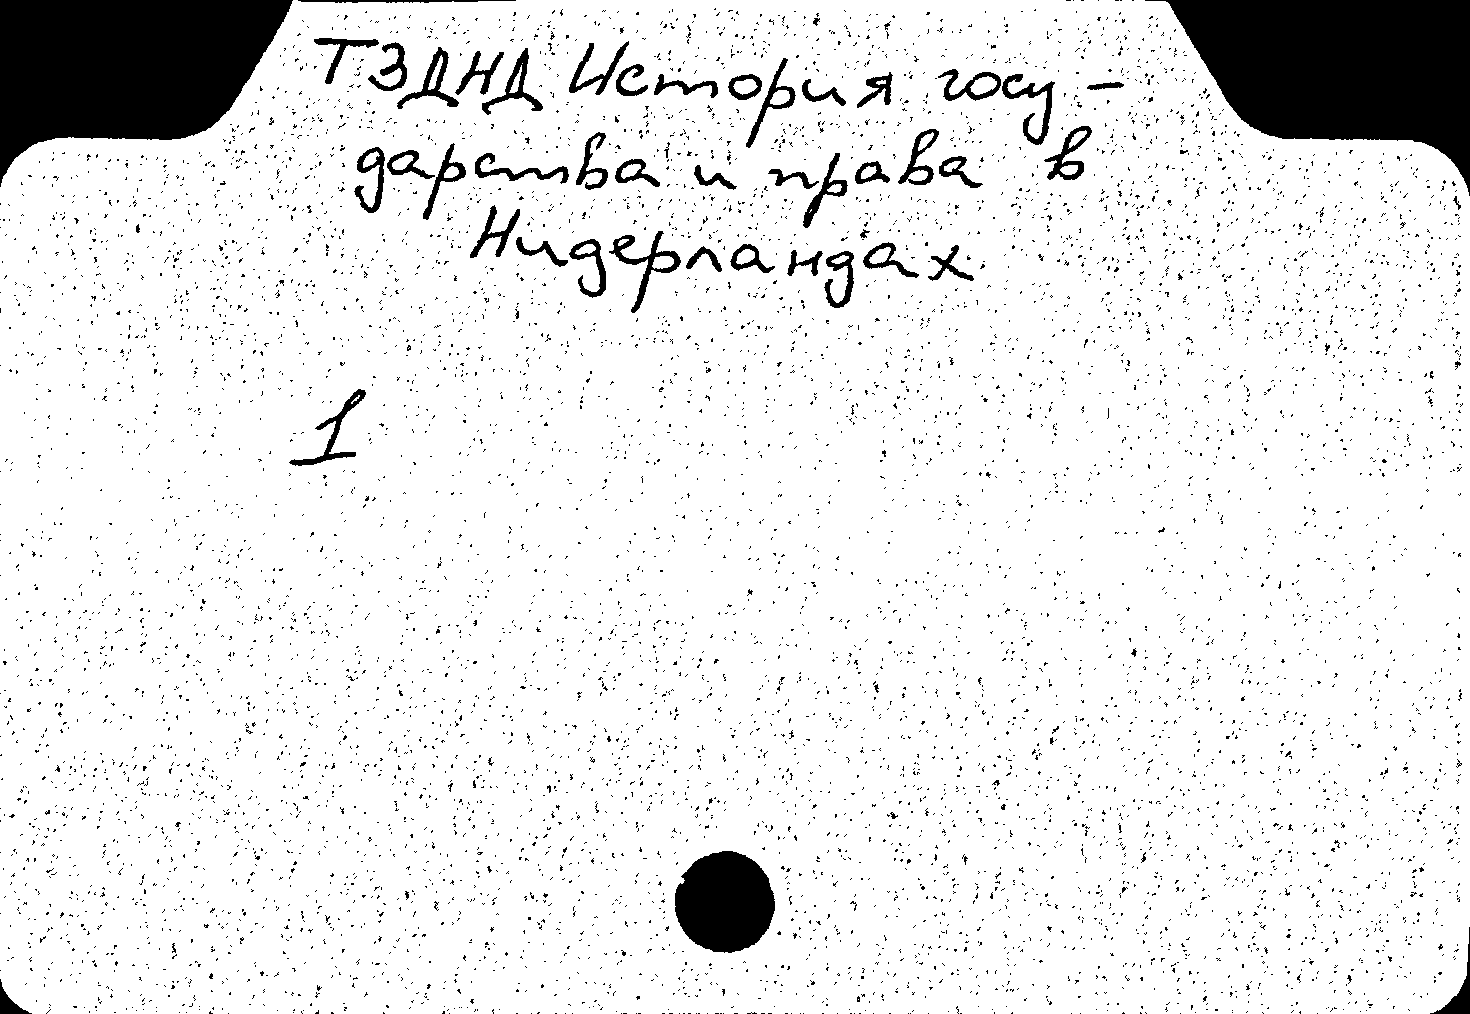 ТЗДНД История госу-
дарства и права в
Нидерландах
1